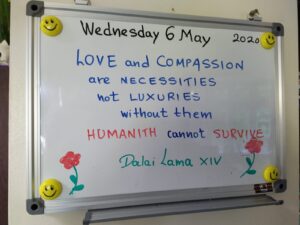 Wednesday 6 May 2020
LOVE and COMPASSION
are NECESSITIES
not LUXURIES
without them
HUMANITH cannot SURVIVE
Dalai Lama XIV